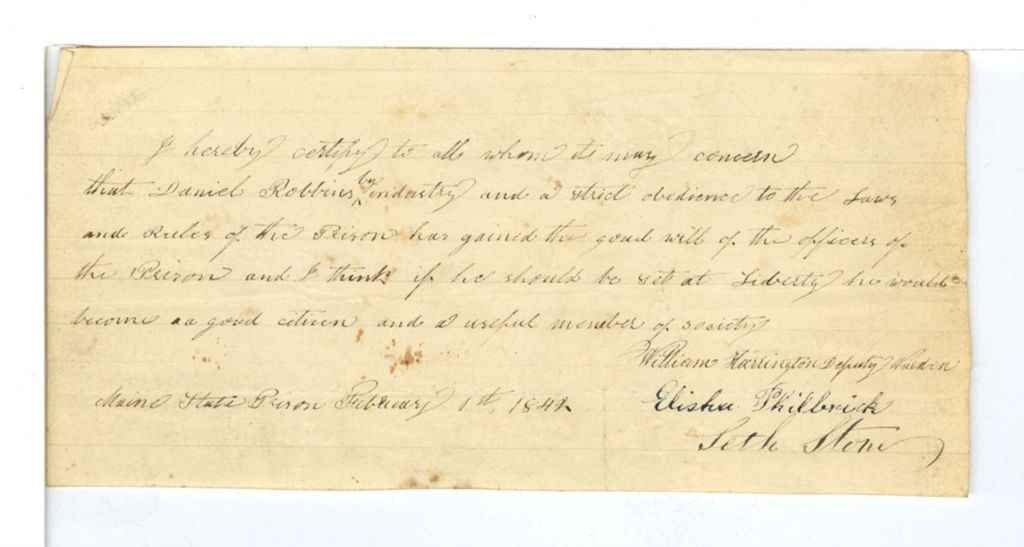 I hereby certify to all whom it may concern
that Daniel Robbins by industry and a strict obedience to the Laws
and Rules of the Prison has gained the good will of the officers of
the Prison and I think if he should be set at Liberty he would
become a a good citizen and a useful member of society
William Harrington Deputy Warden
Maine State Prison February 1st, 1842 Elisha Philbrick
Seth Stone